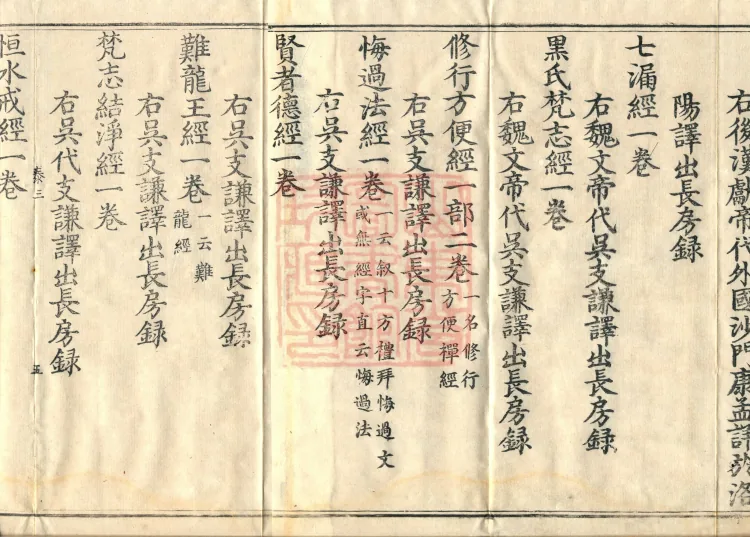 右後漢獻帝代外國沙門康孟詳於洛
陽譯出長房録
七漏經一卷
右魏文帝代吳支謙譯出長房録
黑氏梵志經一卷
右魏文帝代吳支謙譯出長房録
修行方便經一部二卷一名修行方便禪經
右吳支謙譯出長房録
悔過法經一卷一云敘十方禮拜悔過文或無經字直云悔過法
右吳支謙譯出長房録
賢者德經一卷
右吳支謙譯出長房録
難龍王經一卷一云難龍經
右吳支謙譯出長房録
梵志結淨經一卷
右吳代支謙譯出長房録
泰三
五
恒水戒經一卷